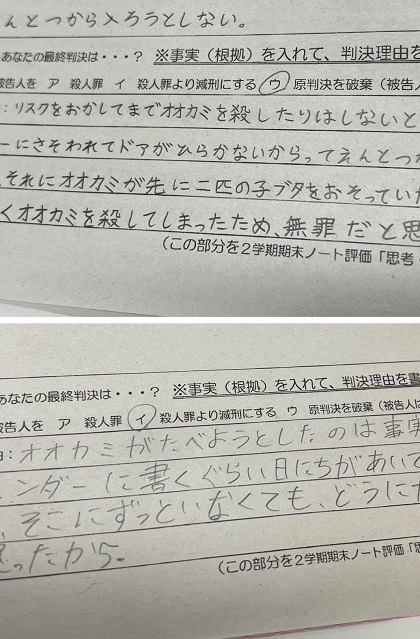 えんとつから入ろうとしない。
あなたの最終判決は・・・? ※事実(根拠)を入れて、判決理由を
被告人を ア 殺人罪 イ 殺人罪より減刑にする ウ 原判決を破棄(被告人
:リスクをおかしてまでオオカミを殺したりはしないと
ーにさそわれてドアがひらかないからってえんとつか
、それにオオカミが先に二匹の子ブタをおそってい
くオオカミを殺してしまったため、無罪だと思
(この部分を2学期期末ノート評価「思考・
あなたの最終判決は・・・? ※事実(根拠)を入れて、判決理由を書
被告人を ア 殺人罪 イ 殺人罪より減刑にする ウ 原判決を破棄(被告人に
:オオカミがたべようとしたのは事実
ンダーに書くぐらい日にちがあいて
、そこにずっといなくても、どうにか
思ったから。
(この部分を2学期期末ノート評価「思